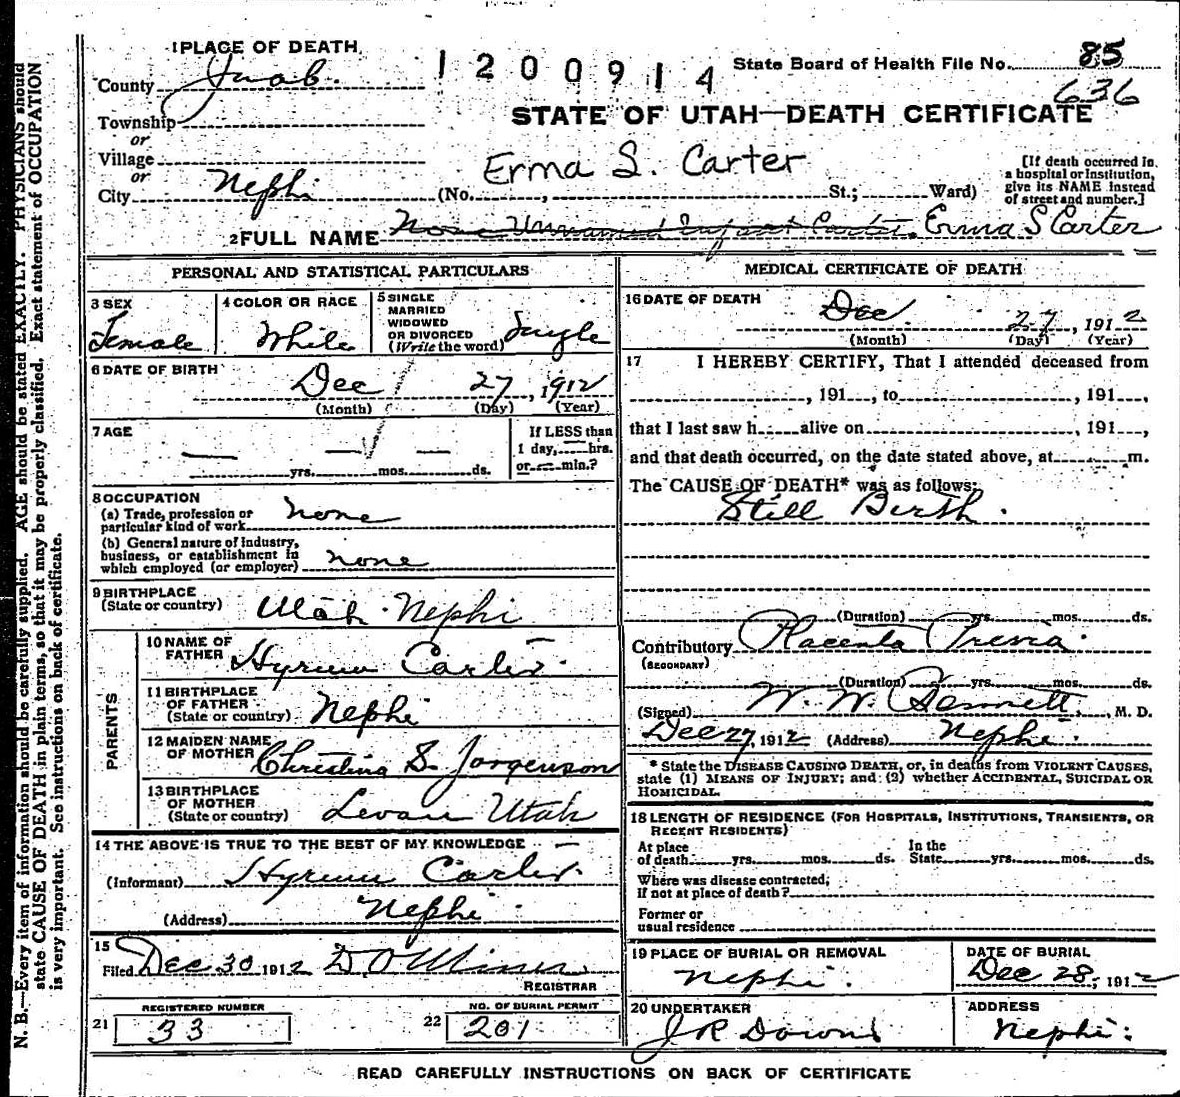 1 PLACE OF DEATH
1200914
State Board of Health File No. 85
636
County Juab.
STATE OF UTAH—DEATH CERTIFICATE
Township
or
Village
or
City Nephi
Erma S. Carter
(No. , St.; Ward)
[If death occurred in
a hospital or institution,
give its NAME instead
of street and number.]
2 FULL NAME None Unnamed Infant Carter. Erma S Carter
PERSONAL AND STATISTICAL PARTICULARS
3 SEX
Female
4 COLOR OR RACE
White
5 SINGLE
MARRIED
WIDOWED
OR DIVORCED
(Write the word)
Single
6 DATE OF BIRTH
Dec 27, 1912
(Month) (Day) (Year)
7 AGE
— — —
yrs. mos. ds.
If LESS than
1 day, — hrs.
or — min.?
8 OCCUPATION
(a) Trade, profession or
particular kind of work none
(b) General nature of industry,
business, or establishment in
which employed (or employer) none
9 BIRTHPLACE
(State or country) Utah Nephi
PARENTS
10 NAME OF
FATHER Hyrum Carter
11 BIRTHPLACE
OF FATHER
(State or country) Nephi
12 MAIDEN NAME
OF MOTHER Christina S. Jorgenson
13 BIRTHPLACE
OF MOTHER
(State or country) Levan Utah
14 THE ABOVE IS TRUE TO THE BEST OF MY KNOWLEDGE
(Informant) Hyrum Carter
(Address) Nephi
15
Filed Dec 30 1912 D O Miner
REGISTRAR
REGISTERED NUMBER
21 33
NO. OF BURIAL PERMIT
22 201
MEDICAL CERTIFICATE OF DEATH
16 DATE OF DEATH
Dec 27, 1912
(Month) (Day) (Year)
17 I HEREBY CERTIFY, That I attended deceased from
, 191 , to , 191 ,
that I last saw h alive on , 191 ,
and that death occurred, on the date stated above, at m.
The CAUSE OF DEATH* was as follows:
Still Birth.
(Duration) yrs. mos. ds.
Contributory Placenta Previa.
(SECONDARY)
(Duration) yrs. mos. ds.
(Signed) W. W. Bennett, M. D.
Dec 27, 1912 (Address) Nephi.
* State the DISEASE CAUSING DEATH, or, in deaths from VIOLENT CAUSES,
state (1) MEANS OF INJURY; and (2) whether ACCIDENTAL, SUICIDAL OR
HOMICIDAL.
18 LENGTH OF RESIDENCE (FOR HOSPITALS, INSTITUTIONS, TRANSIENTS, OR
RECENT RESIDENTS)
At place
of death yrs. mos. ds.
In the
State yrs. mos. ds.
Where was disease contracted,
if not at place of death?
Former or
usual residence
19 PLACE OF BURIAL OR REMOVAL
Nephi.
DATE OF BURIAL
Dec 28, 1912
20 UNDERTAKER
J R Downs
ADDRESS
Nephi.
READ CAREFULLY INSTRUCTIONS ON BACK OF CERTIFICATE
N. B.—Every item of information should be carefully supplied. AGE should be stated EXACTLY. PHYSICIANS should
state CAUSE OF DEATH in plain terms, so that it may be properly classified. Exact statement of OCCUPATION
is very important. See instructions on back of certificate.